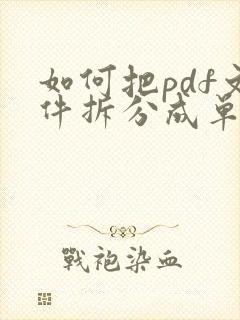 如何把pdf文
件拆分成单
戰袍染血